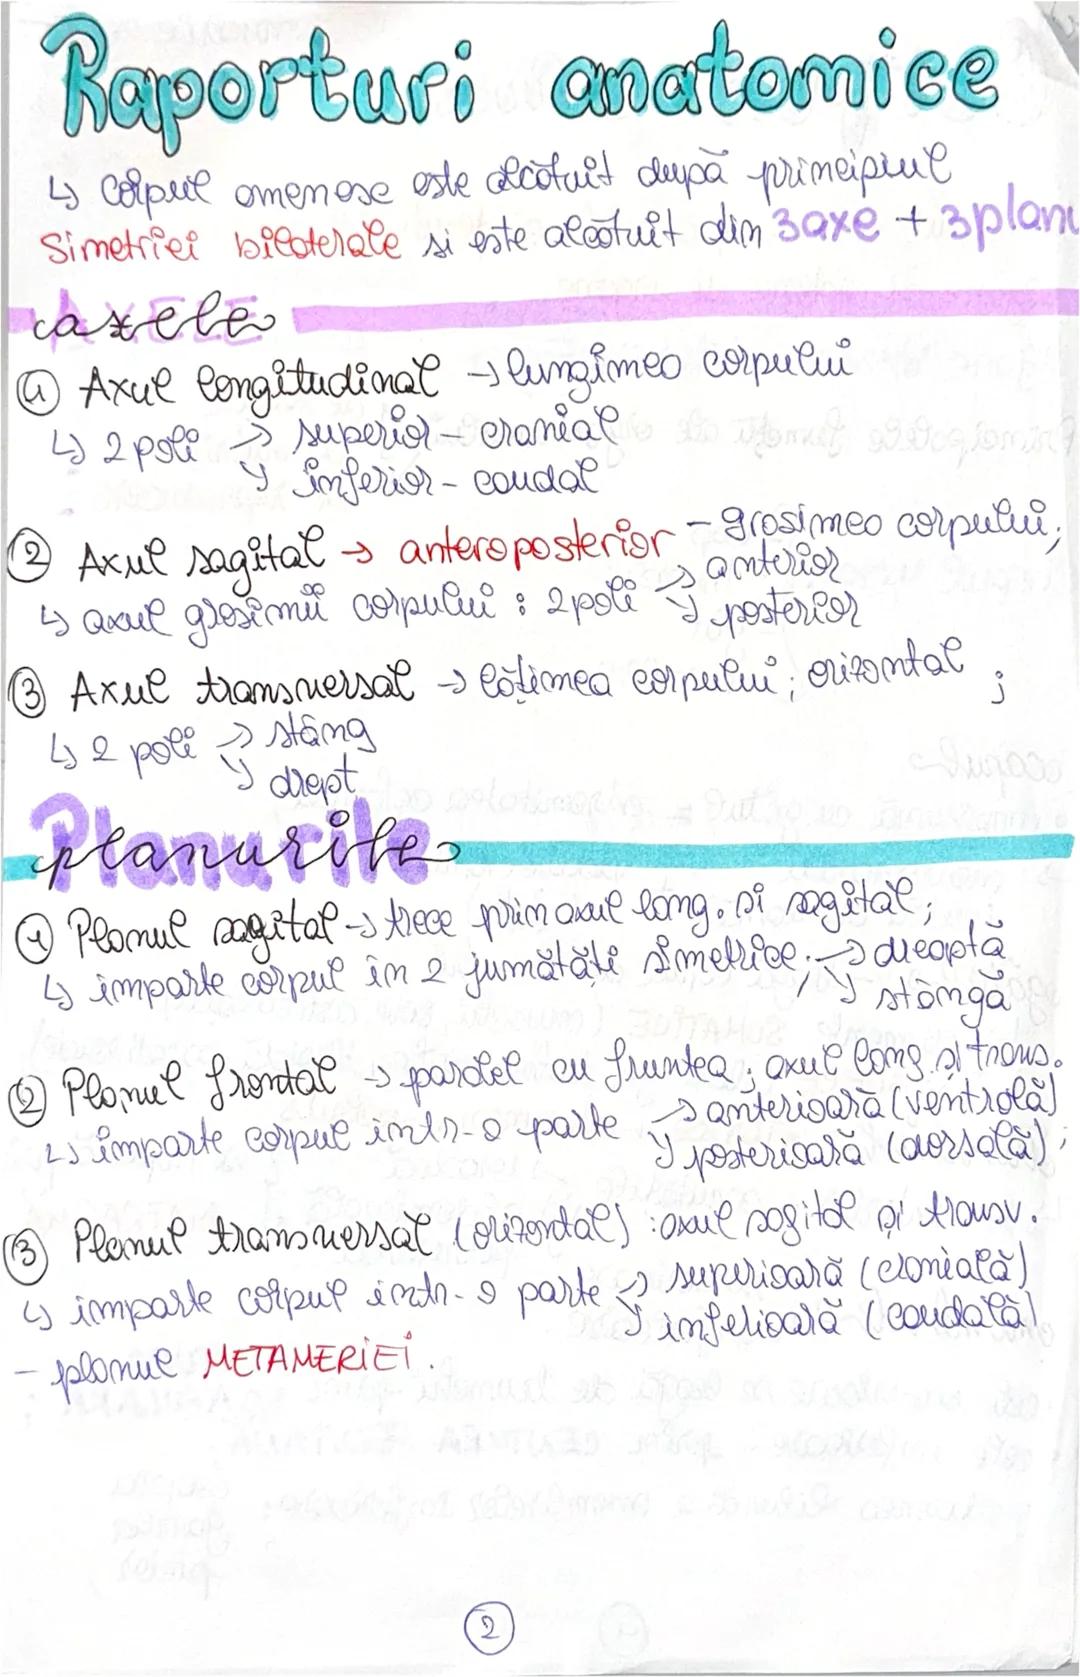 Raporturi anatomice
↳ Corpul omenesc este alcătuit după principiul
Simetriei bilaterale si este alcătuit din 3 axe + 3 planu
AXELE
axele
① Axul longitudinal → lungimea corpului
↳ 2 poli → superior - cranial
↘ inferior - caudal
② Axul sagital → anteroposterior - grosimea corpului;
↳ axul grosimii corpului : 2 poli → anterior
↘ posterior
③ Axul transversal → lățimea corpului; orizontal ;
↳ 2 poli → stâng
↘ drept
Planurile
planurile
① Planul sagital → trece prin axul long. și sagital;
↳ imparte corpul in 2 jumătăți simetrice: → dreaptă
↘ stângă
② Planul frontal → paralel cu fruntea; axul long și trans.
↳ imparte corpul intr-o parte → anterioară (ventrală)
↘ posterioară (dorsală);
③ Planul transversal (orizontal) : axul sagital și transv.
↳ imparte corpul intr-o parte → superioară (cranială)
↘ inferioară (caudală)
- planul METAMERIEI.
2